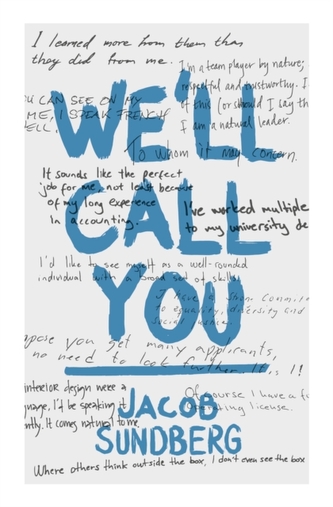 I learned more from them than
they did from me.
I'm a team player by nature;
respectful and trustworthy. I
of this (or should I say th
I am a natural leader.
OU CAN SEE ON MY
ME, I SPEAK FRENCH
ELL.
WE'LL
To whom it may concern.
It sounds like the perfect
job for me, not least because
of my long experience
in accounting.
I've worked multiple
to my university de
CALL
I'd like to see myself as a well-rounded
individual with a broad set of skills
I have a strong commi
to equality, diversity and
social justice.
YOU
pose you get many applicants,
no need to look further. It is I!
interior design were a
guage, I'd be speaking it
ntly. It comes natural to me.
Of course I have a fo
operating license.
JACOB
SUNDBERG
Where others think outside the box, I don't even see the box